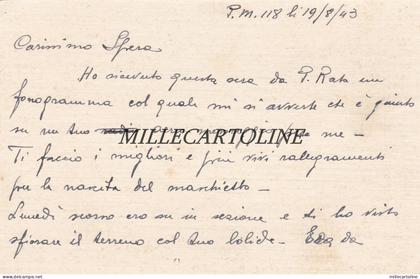 P.M. 118 li 19/8/43
Carissimo Spera
Ho ricevuto questa sera da P. Rata un
fonogramma col quale mi si avverte che è giunto
su un tuo me —
MILLECARTOLINE
Ti faccio i migliori e più vivi rallegramenti
per la nascita del maschietto —
Lunedì scorso ero su in sezione e ti ho visto
sfiorare il terreno col tuo bolide — Era da